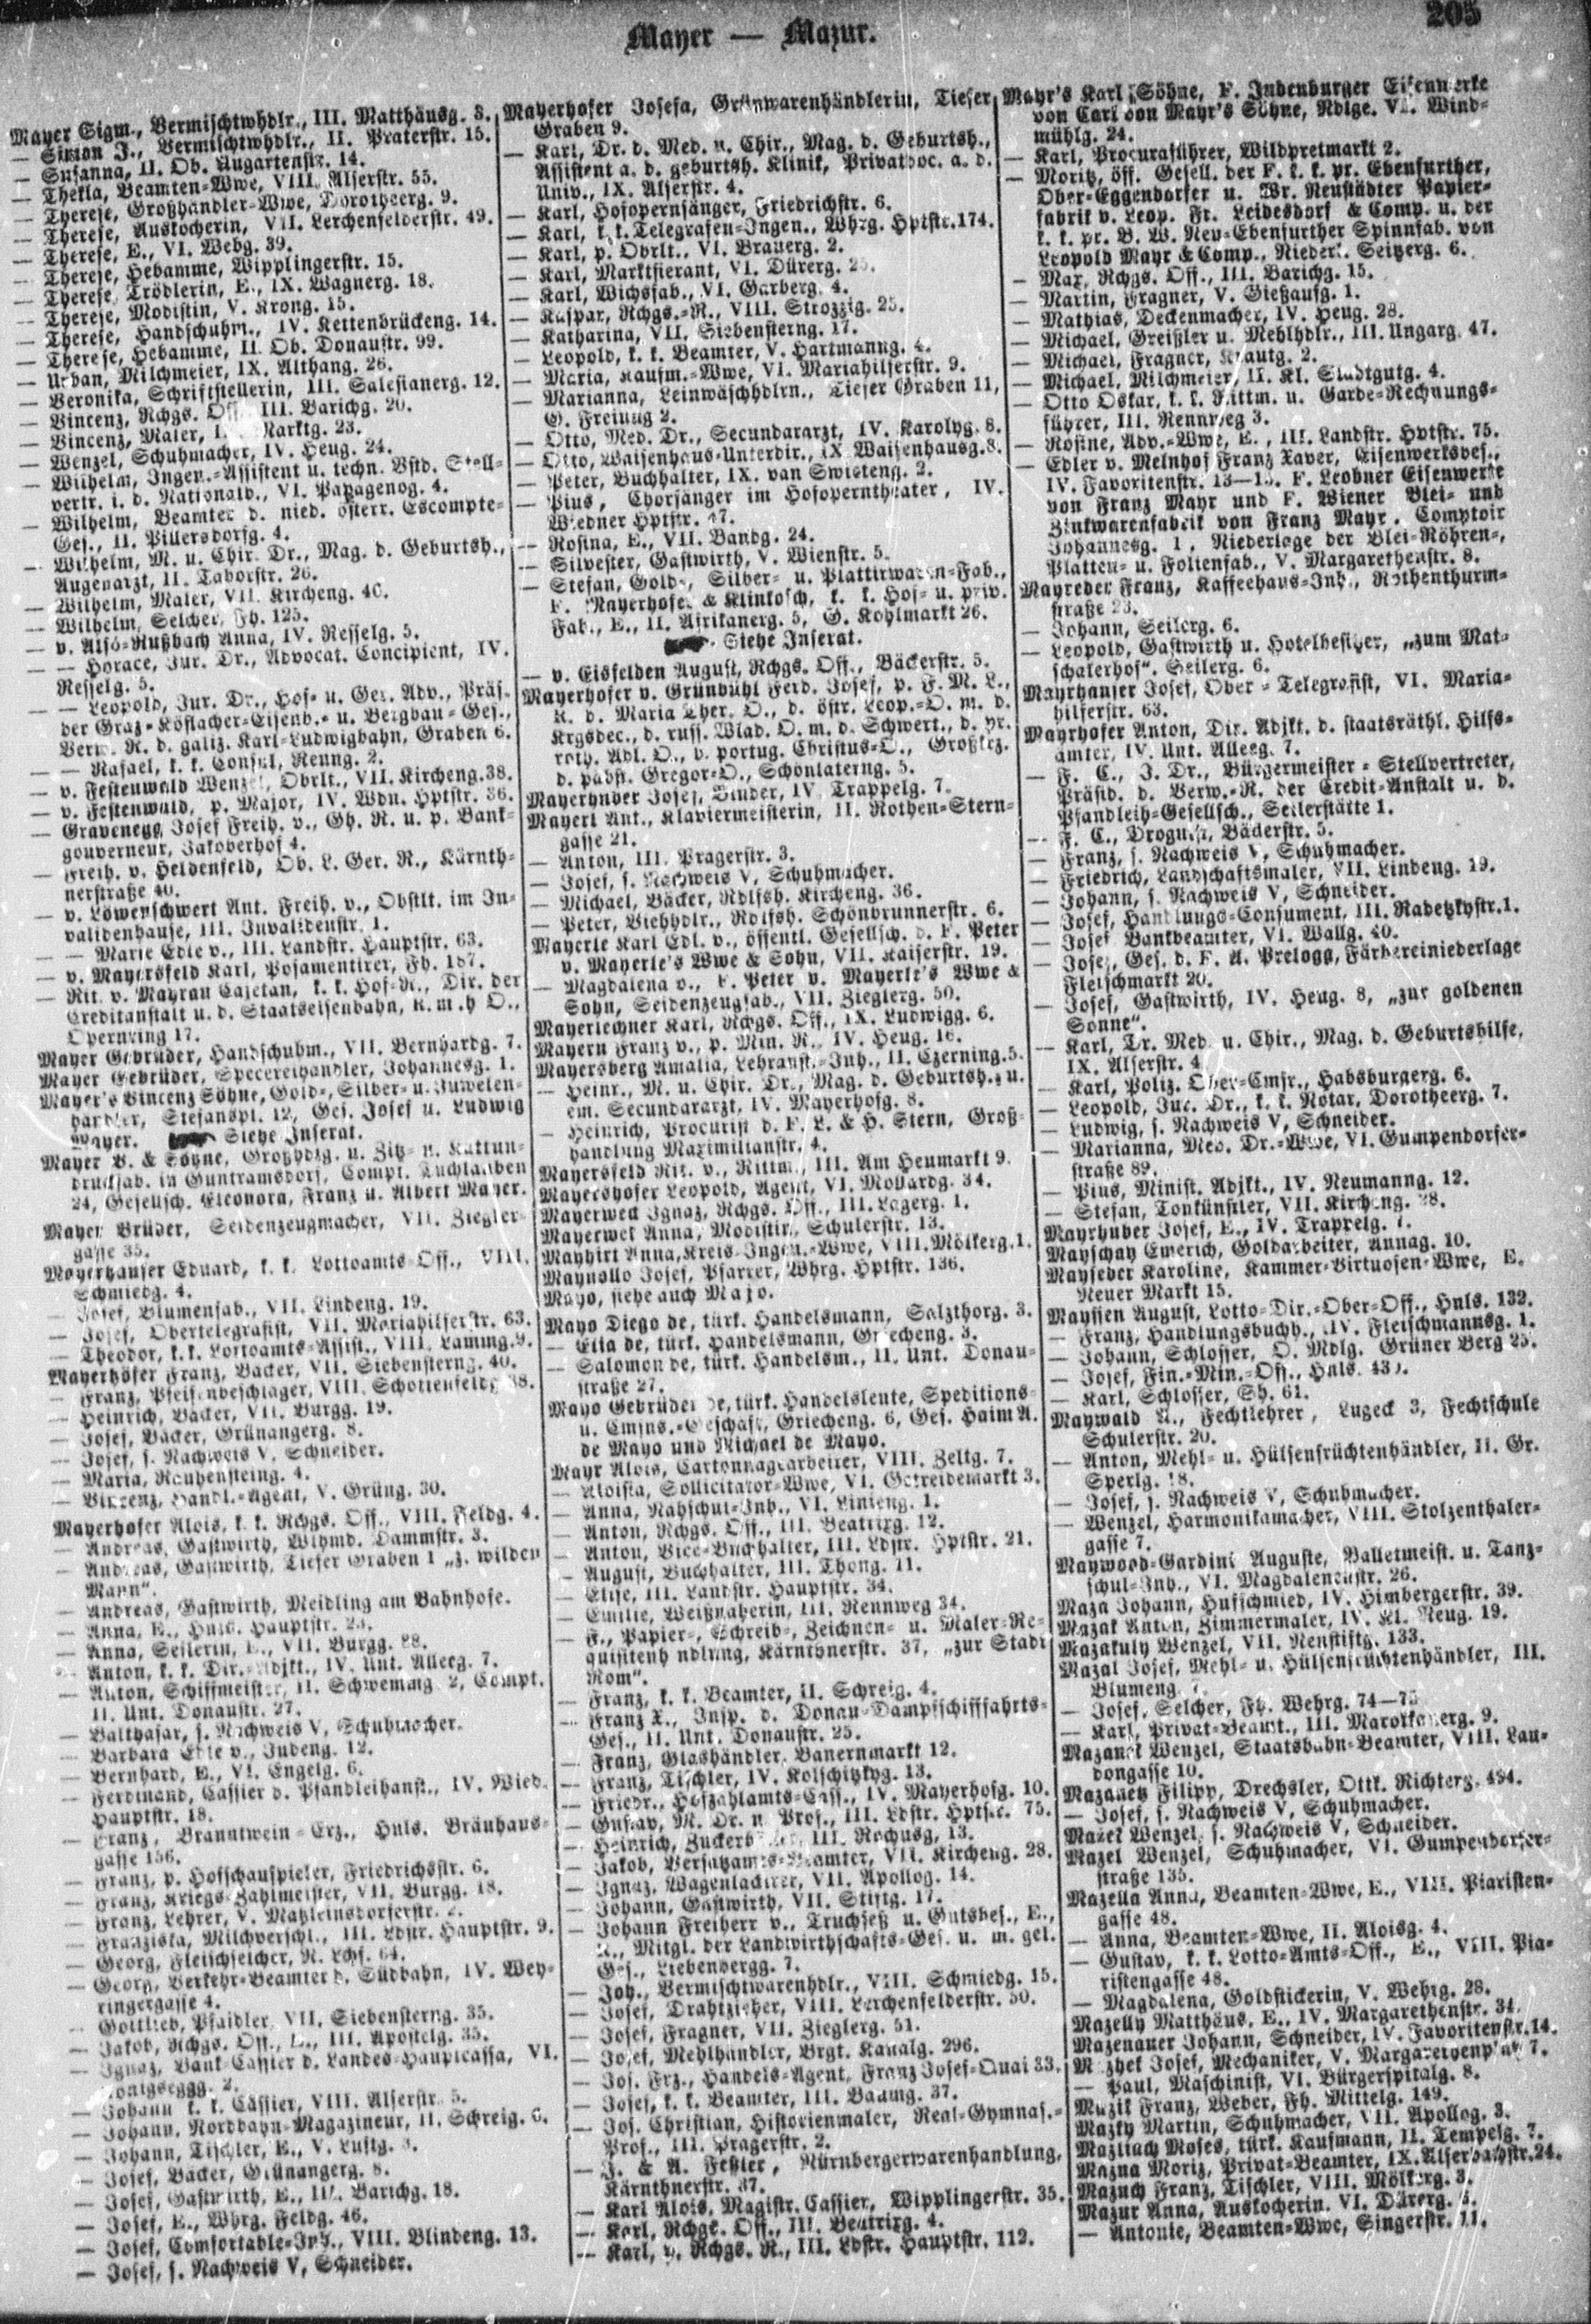 205
Mayer — Mazur.
Mayer Sigm., Vermischtwhdlr., III. Matthäusg. 3.
— Simon J., Vermischtwhdlr., II. Praterstr. 15.
— Susanna, II. Ob. Augartenstr. 14.
— Thekla, Beamten-Wwe, VIII. Alserstr. 55.
— Therese, Großhändler-Wwe, Dorotheerg. 9.
— Therese, Auskocherin, VII. Lerchenfelderstr. 49.
— Therese, E., VI. Webg. 39.
— Therese, Hebamme, Wipplingerstr. 15.
— Therese, Trödlerin, E., IX. Wagnerg. 18.
— Therese, Modistin, V. Krong. 15.
— Therese, Handschuhm., IV. Kettenbrückeng. 14.
— Therese, Hebamme, II. Ob. Donaustr. 99.
— Urban, Milchmeier, IX. Althang. 26.
— Veronika, Schriftstellerin, III. Salesianerg. 12.
— Vincenz, Rchgs. Off., III. Barichg. 20.
— Vincenz, Maler, Marktg. 23.
— Wenzel, Schuhmacher, IV. Heug. 24.
— Wilhelm, Ingen.-Assistent u. techn. Vstd. Stell-
vertr. i. d. Nationalb., VI. Papagenog. 4.
— Wilhelm, Beamter d. nied. österr. Escompte-
Ges., II. Pillersdorfg. 4.
— Wilhelm, M. u. Chir. Dr., Mag. d. Geburtsh.,
Augenarzt, II. Taborstr. 26.
— Wilhelm, Maler, VII. Kircheng. 40.
— Wilhelm, Selcher, Fh. 125.
— v. Alsó-Rußbach Anna, IV. Resselg. 5.
— — Horace, Jur. Dr., Advocat. Concipient, IV.
Resselg. 5.
— — Leopold, Jur. Dr., Hof- u. Ger. Adv., Präs.
der Graz-Köflacher-Eisenb.- u. Bergbau-Ges.,
Verw. R. d. galiz. Karl-Ludwigbahn, Graben 6.
— — Rafael, k. k. Consul, Renng. 2.
— v. Festenwald Wenzel, Obrlt., VII. Kircheng. 38.
— v. Festenwald, p. Major, IV. Wdn. Hptstr. 36.
— Gravenegg Josef Freih. v., Gh. R. u. p. Bank-
gouverneur, Jakoberhof 4.
— Freih. v. Heldenfeld, Ob. L. Ger. R., Kärnth-
nerstraße 40.
— v. Löwenschwert Ant. Freih. v., Obstlt. im In-
validenhause, III. Invalidenstr. 1.
— — Marie Edle v., III. Landstr. Hauptstr. 63.
— v. Mayersfeld Karl, Posamentirer, Fh. 167.
— Rit. v. Mayrau Cajetan, k. k. Hof-R., Dir. der
Creditanstalt u. d. Staatseisenbahn, R. m. h O.,
Opernring 17.
Mayer Gebrüder, Handschuhm., VII. Bernhardg. 7.
Mayer Gebrüder, Specereihändler, Johannesg. 1.
Mayer's Vincenz Söhne, Gold-, Silber- u. Juwelen-
händler, Stefanspl. 12, Ges. Josef u. Ludwig
Mayer. Siehe Inserat.
Mayer B. & Söhne, Großhdlg. u. Zitz- u. Kattun-
druckfab. in Guntramsdorf, Compt. Tuchlauben
24, Gesellsch. Eleonora, Franz u. Albert Mayer.
Mayer Brüder, Seidenzeugmacher, VII. Ziegler-
gasse 35.
Mayerhauser Eduard, k. k. Lottoamts Off., VIII.
Schmiedg. 4.
— Josef, Blumenfab., VII. Lindeng. 19.
— Josef, Obertelegrafist, VII. Mariahilferstr. 63.
— Theodor, k. k. Lottoamts-Assist., VIII. Lammg. 9.
Mayerhöfer Franz, Bäcker, VII. Siebensterng. 40.
— Franz, Pfeifenbeschlager, VIII. Schottenfeldg. 38.
— Heinrich, Bäcker, VII. Burgg. 19.
— Josef, Bäcker, Grünangerg. 8.
— Josef, s. Nachweis V, Schneider.
— Maria, Rauhensteing. 4.
— Vincenz, Handl.-Agent, V. Grüng. 30.
Mayerhofer Alois, k. k. Rchgs. Off., VIII. Feldg. 4.
— Andreas, Gastwirth, Wthmd. Dammstr. 3.
— Andreas, Gastwirth, Tiefer Graben 1 „z. wilden
Mann“.
— Andreas, Gastwirth, Meidling am Bahnhofe.
— Anna, E., Huls. Hauptstr. 23.
— Anna, Seilerin, E., VII. Burgg. 88.
— Anton, k. k. Dir.-Adjkt., IV. Unt. Alleeg. 7.
— Anton, Schiffmeister, II. Schwemmg. 2, Compt.
II. Unt. Donaustr. 27.
— Balthasar, s. Nachweis V, Schuhmacher.
— Barbara Edle v., Judeng. 12.
— Bernhard, E., VI. Engelg. 6.
— Ferdinand, Cassier d. Pfandleihanst., IV. Wied.
Hauptstr. 18.
— Franz, Branntwein-Erz., Huls. Bräuhaus-
gasse 156.
— Franz, p. Hofschauspieler, Friedrichsstr. 6.
— Franz, Kriegs-Zahlmeister, VII. Burgg. 18.
— Franz, Lehrer, V. Matzleinsdorferstr.
— Franziska, Milchverschl., III. Ldstr. Hauptstr. 9.
— Georg, Fleischselcher, R. Lchf. 64.
— Georg, Verkehr-Beamter d. Südbahn, IV. Wey-
ringergasse 4.
— Gottlieb, Pfaidler, VII. Siebensterng. 35.
— Jakob, Rchgs. Off., E., III. Apostelg. 35.
— Ignaz, Bank-Cassier d. Landes-Hauptcassa, VI.
Königseggg. 2.
— Johann k. k. Cassier, VIII. Alserstr. 5.
— Johann, Nordbahn-Magazineur, II. Schreig. 6.
— Johann, Tischler, E., V. Lustg. 3.
— Josef, Bäcker, Grünangerg. 8.
— Josef, Gastwirth, E., III. Barichg. 18.
— Josef, E., Whrg. Feldg. 46.
— Josef, Comfortable-Inh., VIII. Blindeng. 13.
— Josef, s. Nachweis V, Schneider.
Mayerhofer Josefa, Grünwarenhändlerin, Tiefer
Graben 9.
— Karl, Dr. d. Med. u. Chir., Mag. d. Geburtsh.,
Assistent a. d. geburtsh. Klinik, Privatdoc. a. d.
Univ., IX. Alserstr. 4.
— Karl, Hofopernsänger, Friedrichstr. 6.
— Karl, k. k. Telegrafen-Ingen., Whrg. Hptstr. 174.
— Karl, p. Obrlt., VI. Brauerg. 2.
— Karl, Marktfierant, VI. Dürerg. 25.
— Karl, Wichsfab., VI. Garberg. 4.
— Kaspar, Rchgs.-R., VIII. Strozzig. 25.
— Katharina, VII. Siebensterng. 17.
— Leopold, k. k. Beamter, V. Hartmanng. 4.
— Maria, Kaufm.-Wwe, VI. Mariahilferstr. 9.
— Marianna, Leinwäschhdlrn., Tiefer Graben 11,
G. Freiung 2.
— Otto, Med. Dr., Secundararzt, IV. Karolyg. 8.
— Otto, Waisenhaus-Unterdir., IX. Waisenhausg. 8.
— Peter, Buchhalter, IX. van Swieteng. 2.
— Pius, Chorsänger im Hofoperntheater, IV.
Wiedner Hptstr. 47.
— Rosina, E., VII. Bandg. 24.
— Silvester, Gastwirth, V. Wienstr. 5.
— Stefan, Gold-, Silber- u. Plattirwaren-Fab.,
F. Mayerhofer & Klinkosch, k. k. Hof- u. priv.
Fab., E., II. Afrikanerg. 5, G. Kohlmarkt 26.
Siehe Inserat.
— v. Eisfelden August, Rchgs. Off., Bäckerstr. 5.
Mayerhofer v. Grünbühl Ferd. Josef, p. F. M. L.,
R. d. Maria Ther. O., d. östr. Leop.-O. m. d.
Krgsdec., d. russ. Wlad. O. m. d. Schwert., d. pr.
roth. Adl. O., d. portug. Christus-O., Großkrz.
d. päbst. Gregor-O., Schönlaterng. 5.
Mayerhuber Josef, Binder, IV. Trappelg. 7.
Mayerl Ant., Klaviermeisterin, II. Rothen-Stern-
gasse 21.
— Anton, III. Pragerstr. 3.
— Josef, s. Nachweis V, Schuhmacher.
— Michael, Bäcker, Rdlfsh. Kircheng. 36.
— Peter, Viehhdlr., Rdlfsh. Schönbrunnerstr. 6.
Mayerle Karl Edl. v., öffentl. Gesellsch. d. F. Peter
v. Mayerle's Wwe & Sohn, VII. Kaiserstr. 19.
— Magdalena v., F. Peter v. Mayerle's Wwe &
Sohn, Seidenzeugfab., VII. Zieglerg. 50.
Mayerlechner Karl, Rchgs. Off., IX. Ludwigg. 6.
Mayern Franz v., p. Min. R., IV. Heug. 16.
Mayersberg Amalia, Lehranst.-Inh., II. Czerning. 5.
— Heinr., M. u. Chir. Dr., Mag. d. Geburtsh., u.
em. Secundararzt, IV. Mayerhofg. 8.
— Heinrich, Procurist d. F. L. & H. Stern, Groß-
handlung Maximilianstr. 4.
Mayersfeld Rit. v., Rittm., III. Am Heumarkt 9.
Mayershofer Leopold, Agent, VI. Mollardg. 34.
Mayerweck Ignaz, Rchgs. Off., III. Lagerg. 1.
Mayerwek Anna, Modistin, Schulerstr. 13.
Mayhirt Anna, Kreis-Ingen.-Wwe, VIII. Mölkerg. 1.
Maynollo Josef, Pfarrer, Whrg. Hptstr. 136.
Mayo, siehe auch Majo.
Mayo Diego de, türk. Handelsmann, Salzthorg. 3.
— Elia de, türk. Handelsmann, Griecheng. 3.
— Salomon de, türk. Handelsm., II. Unt. Donau-
straße 27.
Mayo Gebrüder de, türk. Handelsleute, Speditions-
u. Cmjns.-Geschäft, Griecheng. 6, Ges. Haim A.
de Mayo und Michael de Mayo.
Mayr Alois, Cartonnagearbeiter, VIII. Zeltg. 7.
— Aloisia, Sollicitator-Wwe, VI. Getreidemarkt 3.
— Anna, Nähschul-Inh., VI. Linieng. 1.
— Anton, Rchgs. Off., III. Beatrixg. 12.
— Anton, Vice-Buchhalter, III. Ldstr. Hptstr. 21.
— August, Buchhalter, III. Thong. 11.
— Elise, III. Landstr. Hauptstr. 34.
— Emilie, Weißnäherin, III. Rennweg 34.
— F., Papier-, Schreib-, Zeichnen- u. Maler-Re-
quisitenhandlung, Kärnthnerstr. 37, „zur Stadt
Rom“.
— Franz, k. k. Beamter, II. Schreig. 4.
— Franz X., Insp. d. Donau-Dampfschifffahrts-
Ges., II. Unt. Donaustr. 25.
— Franz, Glashändler, Bauernmarkt 12.
— Franz, Tischler, IV. Kolschitzkyg. 13.
— Friedr., Hofzahlamts-Cass., IV. Mayerhofg. 10.
— Gustav, M. Dr. u. Prof., III. Ldstr. Hptstr. 75.
— Heinrich, Zuckerbäcker, III. Rochusg. 13.
— Jakob, Versatzamts-Beamter, VII. Kircheng. 28.
— Ignaz, Wagenlackirer, VII. Apollog. 14.
— Johann, Gastwirth, VII. Stiftg. 17.
— Johann Freiherr v., Truchseß u. Gutsbes., E.,
R., Mitgl. der Landwirthschafts-Ges. u. m. gel.
Ges., Liebenbergg. 7.
— Joh., Vermischtwarenhdlr., VIII. Schmiedg. 15.
— Josef, Drahtzieher, VIII. Lerchenfelderstr. 50.
— Josef, Fragner, VII. Zieglerg. 51.
— Josef, Mehlhändler, Brgt. Kanalg. 296.
— Jos. Frz., Handels-Agent, Franz Josef-Quai 33.
— Josef, k. k. Beamter, III. Baumg. 37.
— Jos. Christian, Historienmaler, Real-Gymnas.-
Prof., III. Pragerstr. 2.
— J. & A. Feßler, Nürnbergerwarenhandlung,
Kärnthnerstr. 37.
— Karl Alois, Magistr. Cassier, Wipplingerstr. 35.
— Karl, Rchgs. Off., III. Beatrixg. 4.
— Karl, p. Rchgs. R., III. Ldstr. Hauptstr. 112.
Mayr's Karl Söhne, F. Judenburger Eisenwerke
von Carl von Mayr's Söhne, Ndlge. VI. Wind-
mühlg. 24.
— Karl, Procuraführer, Wildpretmarkt 2.
— Moritz, öff. Gesell. der F. k. k. pr. Ebenfurther,
Ober-Eggendorfer u. Wr. Neustädter Papier-
fabrik v. Leop. Fr. Leidesdorf & Comp. u. der
k. k. pr. B. W. Neu-Ebenfurther Spinnfab. von
Leopold Mayr & Comp., Niederl. Seitzerg. 6.
— Max, Rchgs. Off., III. Barichg. 15.
— Martin, Fragner, V. Gießaufg. 1.
— Mathias, Deckenmacher, IV. Heug. 28.
— Michael, Greißler u. Mehlhdlr., III. Ungarg. 47.
— Michael, Fragner, Krautg. 2.
— Michael, Milchmeier, II. Kl. Stadtgutg. 4.
— Otto Oskar, k. k. Rittm. u. Garde-Rechnungs-
führer, III. Rennweg 3.
— Rosine, Adv.-Wwe, E., III. Landstr. Hptstr. 75.
— Edler v. Melnhof Franz Xaver, Eisenwerksbes.,
IV. Favoritenstr. 13—15. F. Leobner Eisenwerke
von Franz Mayr und F. Wiener Blei- und
Zinkwarenfabrik von Franz Mayr, Comptoir
Johannesg. 1, Niederlage der Blei-Röhren-,
Platten- u. Folienfab., V. Margarethenstr. 8.
Mayreder Franz, Kaffeehaus-Inh., Rothenthurm-
straße 23.
— Johann, Seilerg. 6.
— Leopold, Gastwirth u. Hotelbesitzer, „zum Mat-
schakerhof“, Seilerg. 6.
Mayrhauser Josef, Ober-Telegrafist, VI. Maria-
hilferstr. 63.
Mayrhofer Anton, Dir. Adjkt. d. staatsräthl. Hilfs-
ämter, IV. Unt. Alleeg. 7.
— F. C., J. Dr., Bürgermeister-Stellvertreter,
Präsid. d. Verw.-R. der Credit-Anstalt u. d.
Pfandleih-Gesellsch., Seilerstätte 1.
— F. C., Droguist, Bäckerstr. 5.
— Franz, s. Nachweis V, Schuhmacher.
— Friedrich, Landschaftsmaler, VII. Lindeng. 19.
— Johann, s. Nachweis V, Schneider.
— Josef, Handlungs-Consument, III. Radetzkystr. 1.
— Josef Bankbeamter, VI. Wallg. 40.
— Josef, Ges. d. F. A. Prelogg, Färbereiniederlage
Fleischmarkt 20.
— Josef, Gastwirth, IV. Heug. 8, „zur goldenen
Sonne“.
— Karl, Dr. Med. u. Chir., Mag. d. Geburtshilfe,
IX. Alserstr. 4
— Karl, Poliz. Ober-Cmsr., Habsburgerg. 6.
— Leopold, Jur. Dr., k. k. Notar, Dorotheerg. 7.
— Ludwig, s. Nachweis V, Schneider.
— Marianna, Med. Dr.-Wwe, VI. Gumpendorfer-
straße 89.
— Pius, Minist. Adjkt., IV. Neumanng. 12.
— Stefan, Tonkünstler, VII. Kircheng. 28.
Mayrhuber Josef, E., IV. Trappelg. 7.
Mayschay Emerich, Goldarbeiter, Annag. 10.
Mayseder Karoline, Kammer-Virtuosen-Wwe, E.
Neuer Markt 15.
Mayssen August, Lotto-Dir.-Ober-Off., Hnls. 132.
— Franz, Handlungsbuchh., IV. Fleischmannsg. 1.
— Johann, Schlosser, O. Mdlg. Grüner Berg 25.
— Josef, Fin.-Min.-Off., Hnls. 43.
— Karl, Schlosser, Sh. 61.
Maywald A., Fechtlehrer, Lugeck 3, Fechtschule
Schulerstr. 20.
— Anton, Mehl- u. Hülsenfrüchtenhändler, II. Gr.
Sperlg. 18.
— Josef, s. Nachweis V, Schuhmacher.
— Wenzel, Harmonikamacher, VIII. Stolzenthaler-
gasse 7.
Maywood-Gardini Auguste, Balletmeist. u. Tanz-
schul-Inh., VI. Magdalenenstr. 26.
Maza Johann, Hufschmied, IV. Himbergerstr. 39.
Mazak Anton, Zimmermaler, IV. Kl. Neug. 19.
Mazakuly Wenzel, VII. Neustiftg. 133.
Mazal Josef, Mehl- u. Hülsenfrüchtenhändler, III.
Blumeng. 7.
— Josef, Selcher, Fh. Wehrg. 74—75
— Karl, Privat-Beamt., III. Marokkanerg. 9.
Mazanek Wenzel, Staatsbahn-Beamter, VIII. Lau-
dongasse 10.
Mazanetz Filipp, Drechsler, Ottk. Richterg. 494.
— Josef, s. Nachweis V, Schuhmacher.
Mazel Wenzel, s. Nachweis V, Schneider.
Mazel Wenzel, Schuhmacher, VI. Gumpendorfer-
straße 135.
Mazella Anna, Beamten-Wwe, E., VIII. Piaristen-
gasse 48.
— Anna, Beamten-Wwe, II. Aloisg. 4.
— Gustav, k. k. Lotto-Amts-Off., E., VIII. Pia-
ristengasse 48.
— Magdalena, Goldstickerin, V. Wehrg. 28.
Mazelly Matthäus, E., IV. Margarethenstr. 34.
Mazenauer Johann, Schneider, IV. Favoritenstr. 14.
Mazhek Josef, Mechaniker, V. Margarethenplatz 7.
— Paul, Maschinist, VI. Bürgerspitalg. 8.
Mazik Franz, Weber, Fh. Mittelg. 149.
Mazky Martin, Schuhmacher, VII. Apollog. 3.
Mazliach Moses, türk. Kaufmann, II. Tempelg. 7.
Mazna Moriz, Privat-Beamter, IX. Alserbachstr. 24.
Mazuch Franz, Tischler, VIII. Mölkerg. 3.
Mazur Anna, Auskocherin, VI. Dürerg.
— Antonie, Beamten-Wwe, Singerstr. 11.